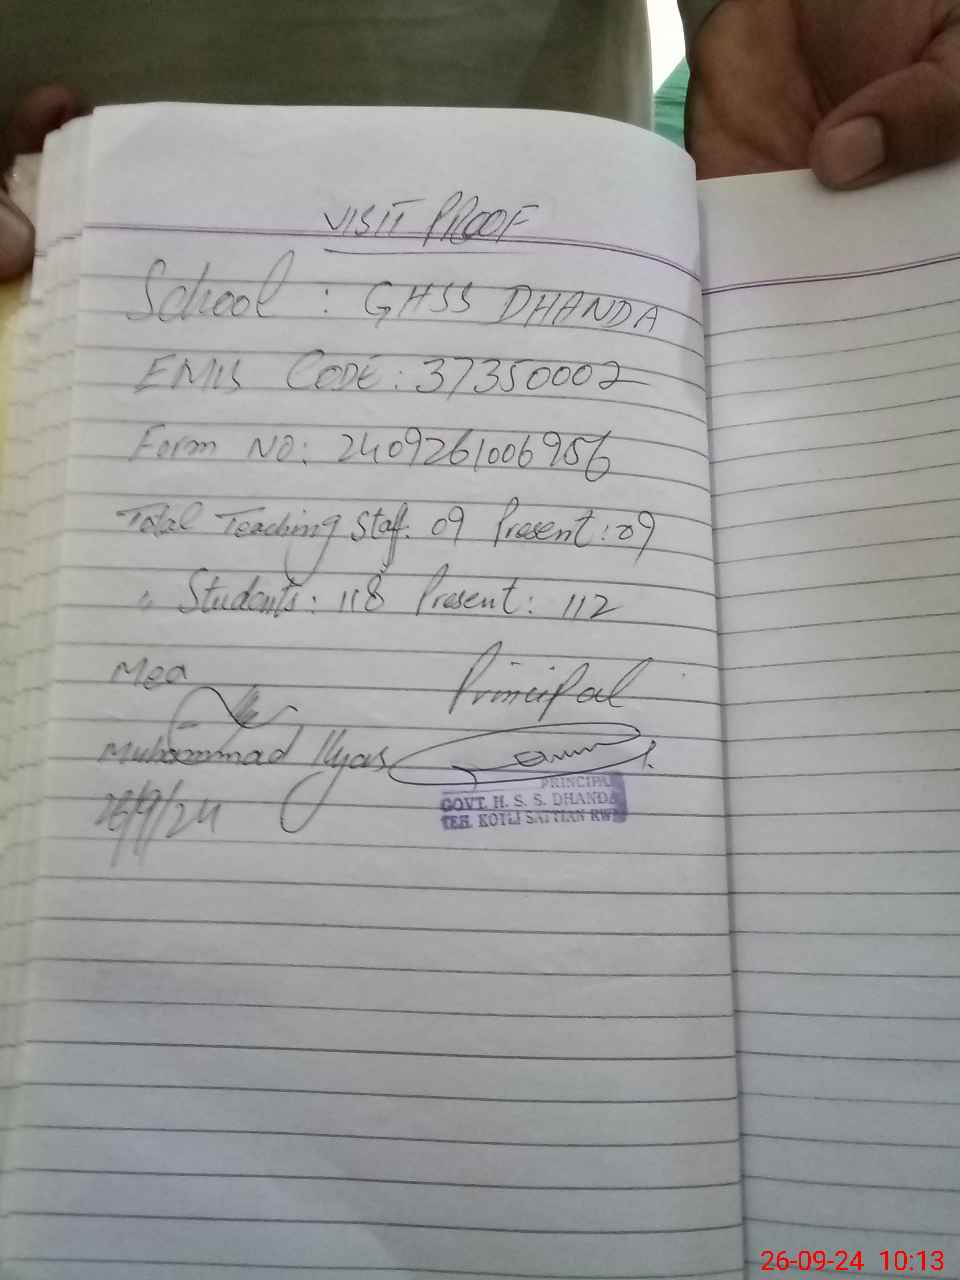 VISIT PROOF
School : GHSS DHANDA
EMIS CODE : 37350002
Form NO: 2409261006956
Total Teaching Staff: 09 Present: 09
" Students: 118 Present: 112
Mea Principal
Muhammad Ilyas
26/9/24
PRINCIPAL
GOVT. H. S. S. DHANDA
TEH. KOTLI SATTIAN RWP
26-09-24 10:13